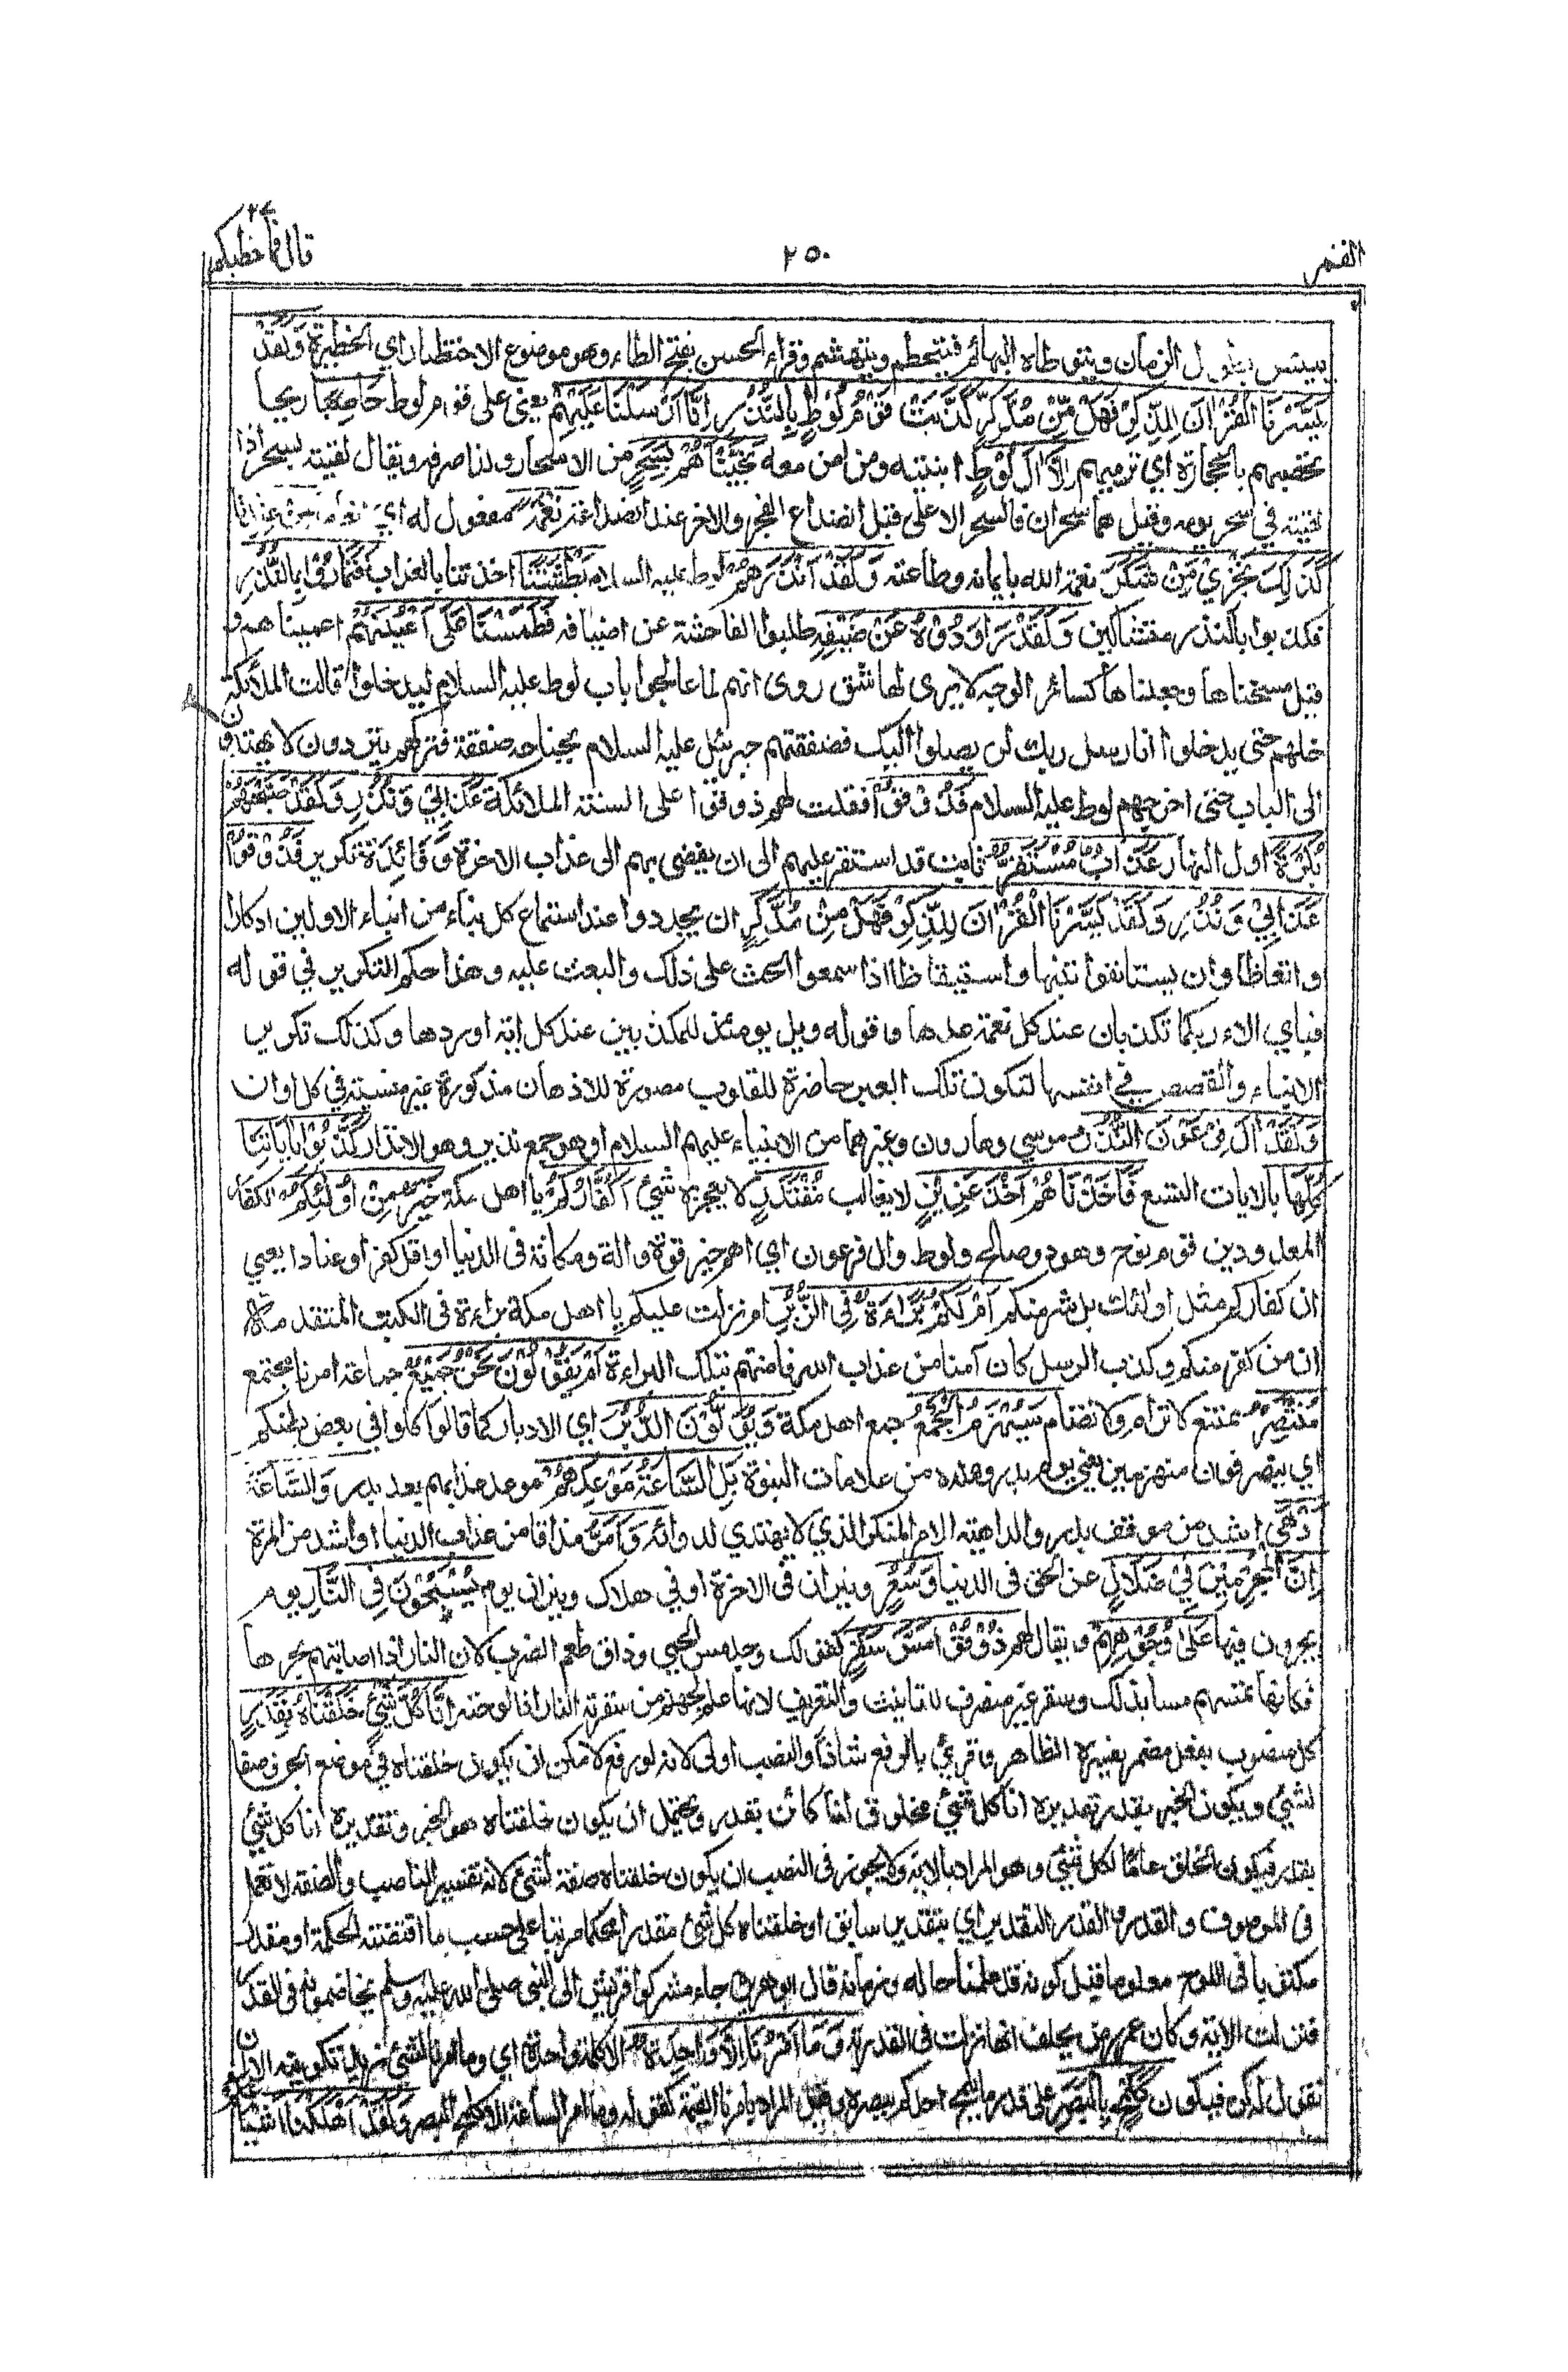 القمر
٢٥٠
قال فما خطبكم ٢٧
ييبس بطول الزمان ويتوطاه البهائم فيتحطم ويتهشم وقراء الحسن بفتح الظاء وهو موضوع الاحتظار اي الحظيرة وَلَقَدْ
يَسَّرْنَا الْقُرْانَ لِلذِّكْرِ فَهَلْ مِنْ مُدَّكِرٍ كَذَّبَتْ قَوْمُ لُوطٍ بِالنُّذُرِ اِنَّا اَرْسَلْنَا عَلَيْهِمْ يعني على قوم لوط حَاصِبًا ريحا
تحصبهم بالحجارة اي ترميهم اِلَّا اٰلَ لُوْطٍ ابنتيه ومن امن معه نَجَّيْنَاهُمْ بِسَحَرٍ من الاسحار ولذا صرفه ويقال لقيته بسحر اذا
لقيته في سحر يومه وقيل هما سحران فالسحر الاعلى قبل انصداع الفجر والاخر عند انصداعه نِعْمَةً مفعول له اي انعاما مِنْ عِنْدِنَا
كَذٰلِكَ نَجْزِيْ مَنْ شَكَرَ نعمة الله بايمانه وطاعته وَلَقَدْ اَنْذَرَهُمْ لوط عليه السلام بَطْشَتَنَا اخذتنا بالعذاب فَتَمَارَوْا بِالنُّذُرِ
فكذبوا بالنذر متشاكين وَلَقَدْ رَاوَدُوْهُ عَنْ ضَيْفِهِ طلبوا الفاحشة عن اضيافه فَطَمَسْنَا عَلٰى اَعْيُنَهُمْ اعميناهم و
قيل مسخناها وجعلناها كسائر الوجه لا يرى لها شق روى انهم لما عالجوا باب لوط عليه السلام ليدخلوا قالت الملائكة
خلهم حتى يدخلوا انا رسل ربك لن يصلوا اليك فصفقتهم جبرئيل عليه السلام بجناحه صفقة فتركهم يترددون لا يهتدون
الى الباب حتى اخرجهم لوط عليه السلام فَذُوْقُوْا فقلت لهم ذوقوا على السنة الملائكة عَذَابِيْ وَنُذُرِ وَلَقَدْ صَبَّحَهُمْ
بُكْرَةً اول النهار عَذَابٌ مُسْتَقِرٌّ ثابت قد استقر عليهم الى ان يفضى بهم الى عذاب الاخرة وَفَائِدَة تكرير فَذُوْقُوْا
عَذَابِيْ وَنُذُرِ وَلَقَدْ يَسَّرْنَا الْقُرْانَ لِلذِّكْرِ فَهَلْ مِنْ مُدَّكِرٍ ان يجددوا عند استماع كل نباء من انباء الاولين ادكارا
واتعاظا وان يستانفوا تنبها واستيقاظا اذا سمعوا الحث على ذلك والبعث عليه وهذا حكم التكرير في قوله
فباي الاء ربكما تكذبان عند كل نعمة عدها وقوله ويل يومئذ للمكذبين عند كل اية اوردها وكذلك تكرير
الانباء والقصص في انفسها لتكون تلك العبر حاضرة للقلوب مصورة للاذهان مذكورة غير منسية في كل اوان
وَلَقَدْ اٰلَ فِرْعَوْنَ النُّذُرُ موسى وهارون وغيرهما من الانبياء عليهم السلام او هو جمع نذير وهو الانذار كَذَّبُوْا بِاٰيَاتِنَا
كُلِّهَا بالايات التسع فَاَخَذْنَاهُمْ اَخْذَ عَزِيْزٍ لا يغالب مُقْتَدِرٍ لا يعجزه شيئ اَكُفَّارُكُمْ يا اهل مكة خَيْرٌ مِنْ اُوْلٰئِكُمْ الكفار
المعدودين قوم نوح وهود وصالح ولوط وال فرعون اي اهم خير قوة والة ومكانة فى الدنيا او اقل كفرا وعنادا يعني
ان كفاركم مثل اولئك بل شر منهم اَمْ لَكُمْ بَرَاءَةٌ فِي الزُّبُرِ ام نزلت عليكم يا اهل مكة براءة فى الكتب المتقدمة
ان من كفر منكم وكذب الرسل كان آمنا من عذاب الله فامنتم بتلك البراءة اَمْ يَقُوْلُوْنَ نَحْنُ جَمِيْعٌ جماعة امرنا مجتمع
مُنْتَصِرٌ ممتنع لا نرام ولا نضام سَيُهْزَمُ الْجَمْعُ جمع اهل مكة وَيُوَلُّوْنَ الدُّبُرَ اي الادبار كما قال كلوا في بعض بطنكم
اي ينصرفون منهزمين يعني يوم بدر وهذه من علامات النبوة بَلِ السَّاعَةُ مَوْعِدُهُمْ موعد عذابهم بعد بدر وَالسَّاعَةُ
اَدْهٰى اشد من موقف بدر والداهية الامر المنكر الذي لا يهتدي لدوائه وَاَمَرُّ مذاقا من عذاب الدنيا او اشد من المرة
اِنَّ الْمُجْرِمِيْنَ فِيْ ضَلَالٍ عن الحق فى الدنيا وَسُعُرٍ ونيران فى الاخرة او في هلاك ونيران يوم يُسْحَبُوْنَ فِي النَّارِ يوم
يجرون فيها عَلٰى وُجُوْهِهِمْ ويقال لهم ذُوْقُوْا مَسَّ سَقَرَ كقولك وجد مس الحمى وذاق طعم الضرب لان النار اذا اصابتهم بحرها
فكانها تمسهم مسا بذلك وسقر غير منصرف للتانيث والتعريف لانها علم لجهنم من سقرته النار اذا لوحته اِنَّا كُلَّ شَيْئٍ خَلَقْنَاهُ بِقَدَرٍ
كل منصوب بفعل مضمر يفسره الظاهر وقرئ بالرفع شاذا والنصب اولى لانه لو رفع لامكن ان يكون خلقناه في موضع الجر وصفا
لشيئ ويكون الخبر بقدر تقديره انا كل شيئ مخلوق لنا كائن بقدر ويحتمل ان يكون خلقناه هو الخبر وتقديره انا كل شيئ
بقدر فيكون الخلق عاما لكل شيئ وهو المراد بالاية ولا يجوز فى النصب ان يكون خلقناه صفة لشيئ لانه تفسير الناصب والصفة لا تعمل
فى الموصوف والقدر والقدر التقدير اي بتقدير سابق او خلقناه كل شيئ مقدرا محكما مرتبا على حسب ما اقتضته الحكمة او مقدرا
مكتوبا فى اللوح معلوما قبل كونه قد علمنا حاله وزمانه قال ابو هريرة جاء مشركوا قريش الى النبي صلى الله عليه وسلم يخاصمونه فى القدر
فنزلت الاية وكان عمر رض يحلف انها نزلت فى القدرية وَمَا اَمْرُنَا اِلَّا وَاحِدَةٌ الا كلمة واحدة اي وما امرنا لشيئ نريد تكوينه الا ان
نقول له كن فيكون كَلَمْحٍ بِالْبَصَرِ على قدر ما يلمح احدكم ببصره وقيل المراد بامرنا القيمة كقوله وما امر الساعة الا كلمح البصر وَلَقَدْ اَهْلَكْنَا اَشْيَا